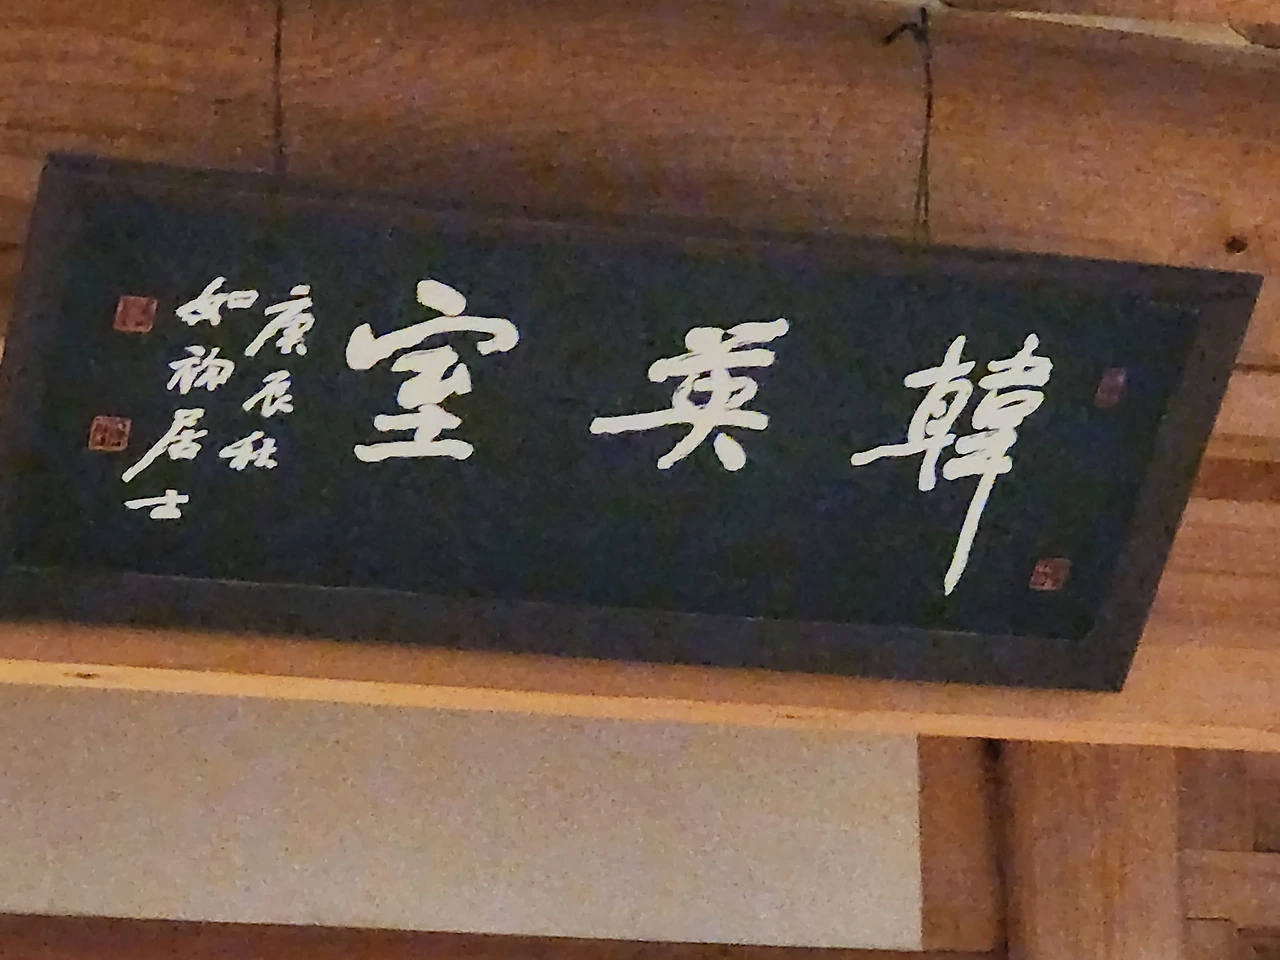 韓英室
庚辰秋
如初居士